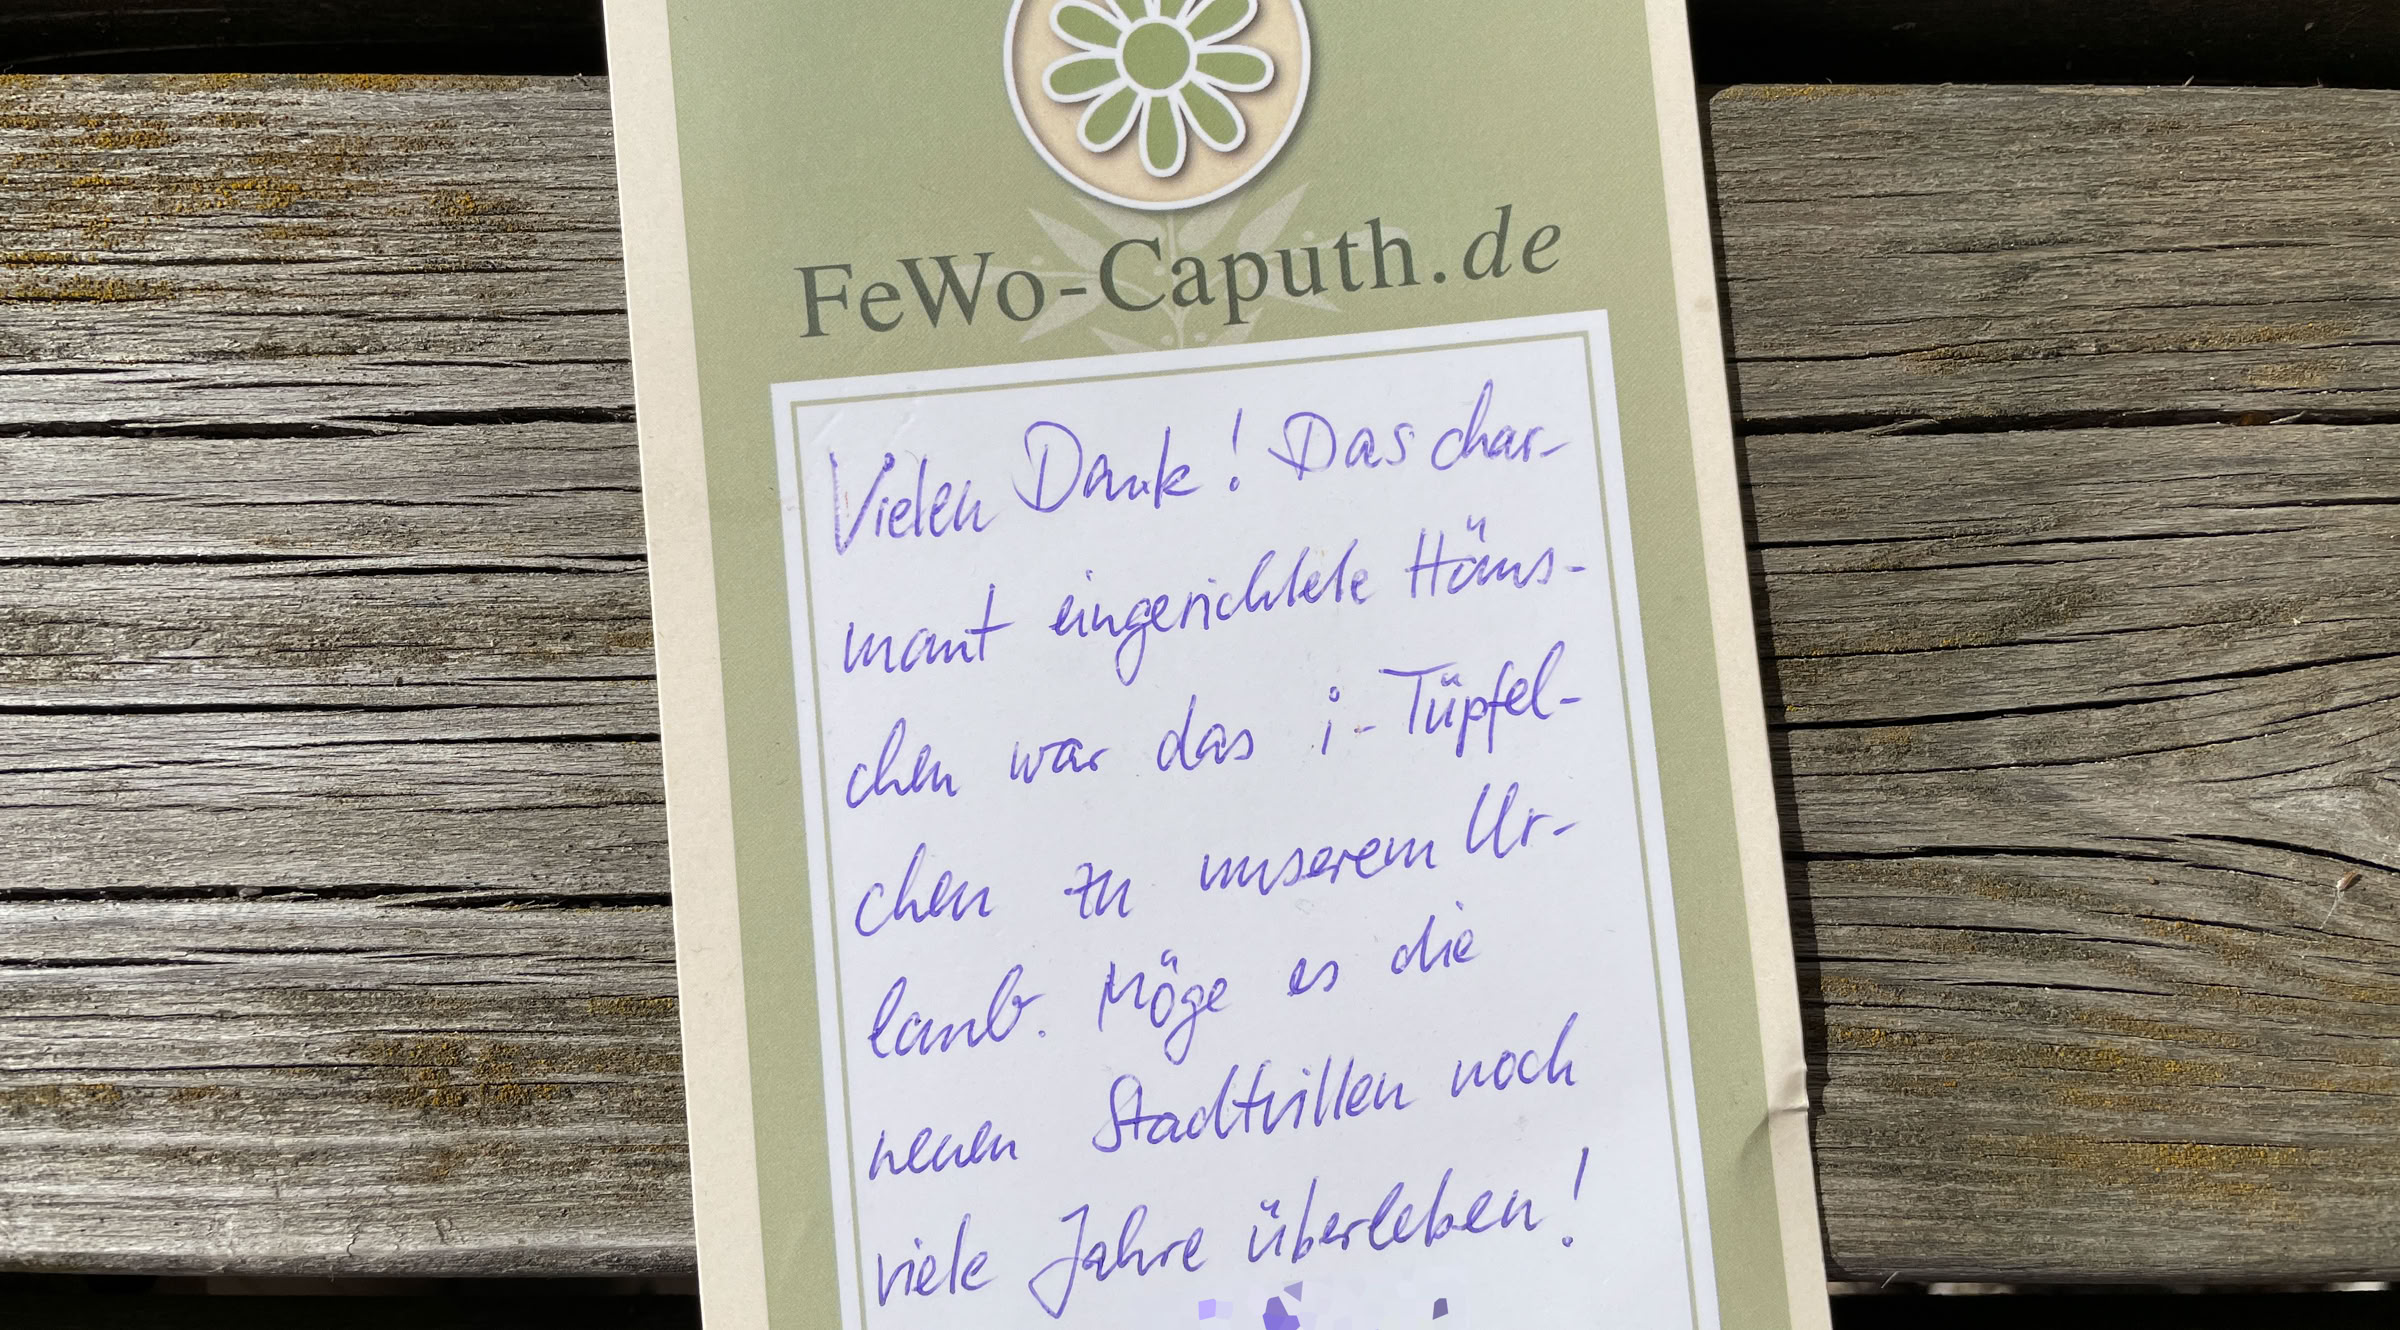 FeWo-Caputh.de
Vielen Dank! Das char-
mant eingerichtete Häus-
chen war das i-Tüpfel-
chen zu unserem Ur-
laub. Möge es die
neuen Stadtvillen noch
viele Jahre überleben!